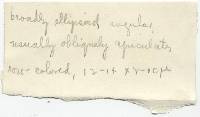 broadly ellipsoid angular,
usually obliquely apiculate,
rose-colored, 12-14 x 8-10µ